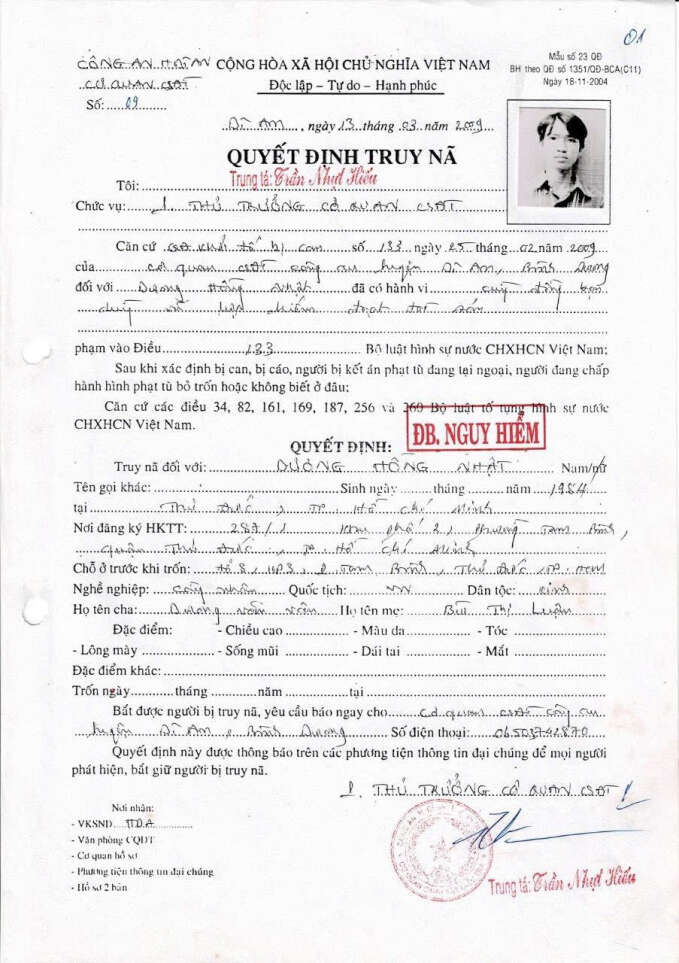 01
CÔNG AN H. DĨ AN CỘNG HÒA XÃ HỘI CHỦ NGHĨA VIỆT NAM
CƠ QUAN CSĐT Độc lập – Tự do – Hạnh phúc
Số: 09
Mẫu số 23 QĐ
BH theo QĐ số 1351/QĐ-BCA(C11)
Ngày 18-11-2004
Dĩ An, ngày 13 tháng 03 năm 2009
QUYẾT ĐỊNH TRUY NÃ
Tôi: Trung tá: Trần Nhựt Hiếu
Chức vụ: THỦ TRƯỞNG CƠ QUAN CSĐT
Căn cứ QĐ khởi tố bị can số 133 ngày 25 tháng 02 năm 2009
của cơ quan CSĐT công an huyện Dĩ An, Bình Dương
đối với Dương Hồng Nhật đã có hành vi cùng đồng bọn
chiếm đoạt tài sản
phạm vào Điều 133 Bộ luật hình sự nước CHXHCN Việt Nam;
Sau khi xác định bị can, bị cáo, người bị kết án phạt tù đang tại ngoại, người đang chấp
hành hình phạt tù bỏ trốn hoặc không biết ở đâu;
Căn cứ các điều 34, 82, 161, 169, 187, 256 và 260 Bộ luật tố tụng hình sự nước
CHXHCN Việt Nam.
ĐB. NGUY HIỂM
QUYẾT ĐỊNH:
Truy nã đối với: DƯƠNG HỒNG NHẬT Nam/nữ
Tên gọi khác: Sinh ngày tháng năm 1984
tại Thủ Đức, TP. Hồ Chí Minh
Nơi đăng ký HKTT: 287/1 khu phố 2, phường Tam Bình,
quận Thủ Đức, TP. Hồ Chí Minh
Chỗ ở trước khi trốn: tổ 8, KP3, P Tam Bình, Thủ Đức, TP. HCM
Nghề nghiệp: công nhân Quốc tịch: VN Dân tộc: kinh
Họ tên cha: Dương Văn Họ tên mẹ: Bùi Thị Luận
Đặc điểm: - Chiều cao - Màu da - Tóc
- Lông mày - Sống mũi - Dái tai - Mắt
Đặc điểm khác:
Trốn ngày tháng năm tại
Bắt được người bị truy nã, yêu cầu báo ngay cho cơ quan CSĐT công an
huyện Dĩ An, Bình Dương Số điện thoại: 06503742870
Quyết định này được thông báo trên các phương tiện thông tin đại chúng để mọi người
phát hiện, bắt giữ người bị truy nã.
THỦ TRƯỞNG CƠ QUAN CSĐT
Nơi nhận:
- VKSND
- Văn phòng CQĐT
- Cơ quan hồ sơ
- Phương tiện thông tin đại chúng
- Hồ sơ 2 bản
Trung tá: Trần Nhựt Hiếu